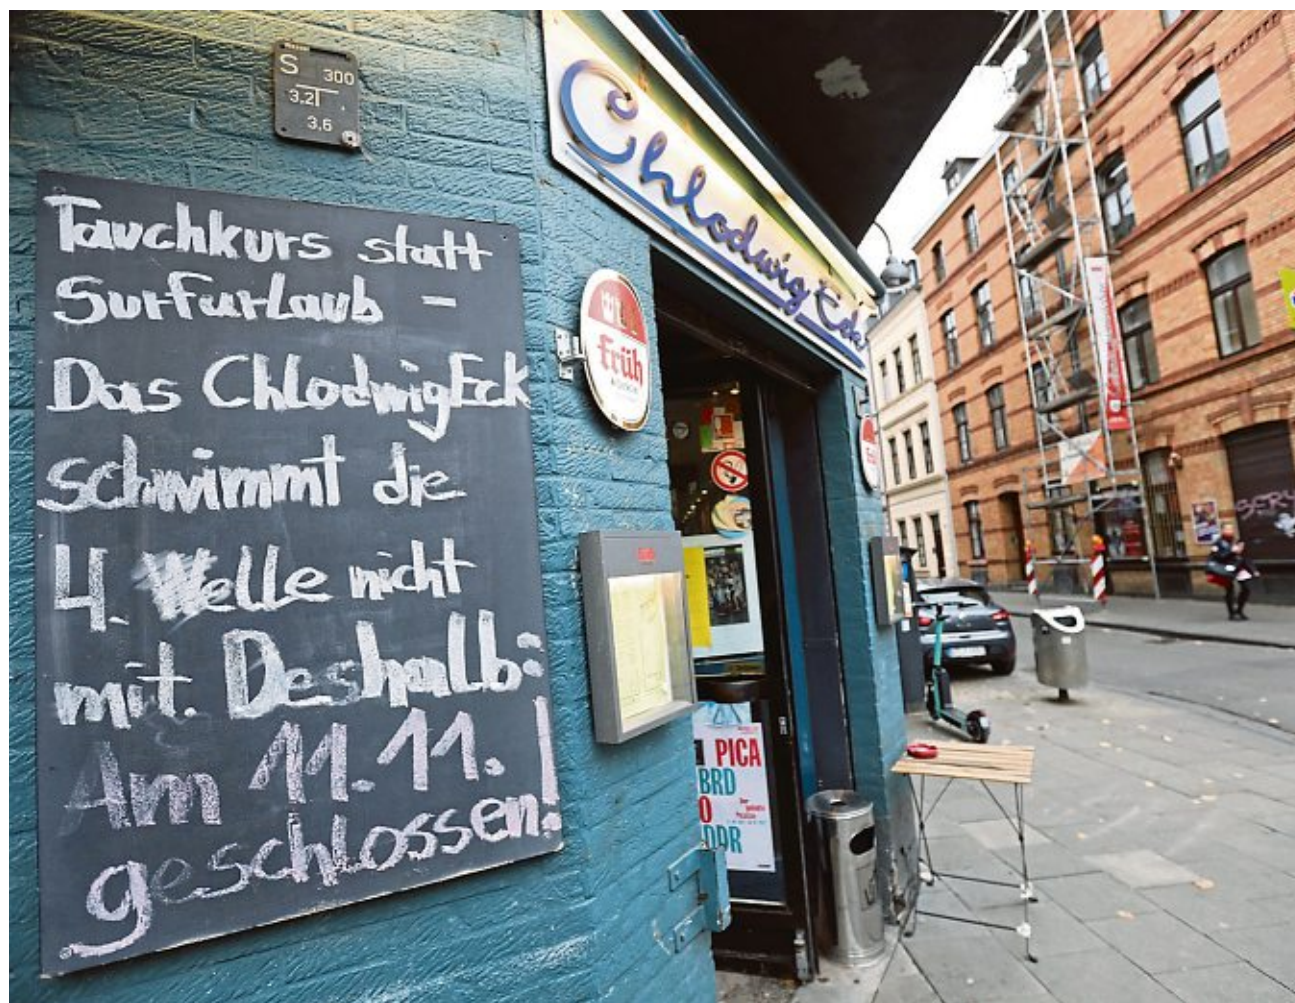 S 300
3.2
3,6
Tauchkurs statt
Surfurlaub –
Das ChlodwigEck
schwimmt die
4. Welle nicht
mit. Deshalb:
Am 11.11.
geschlossen!
Chlodwig Eck
Früh
Früh
PICA
BRD
O
DDR